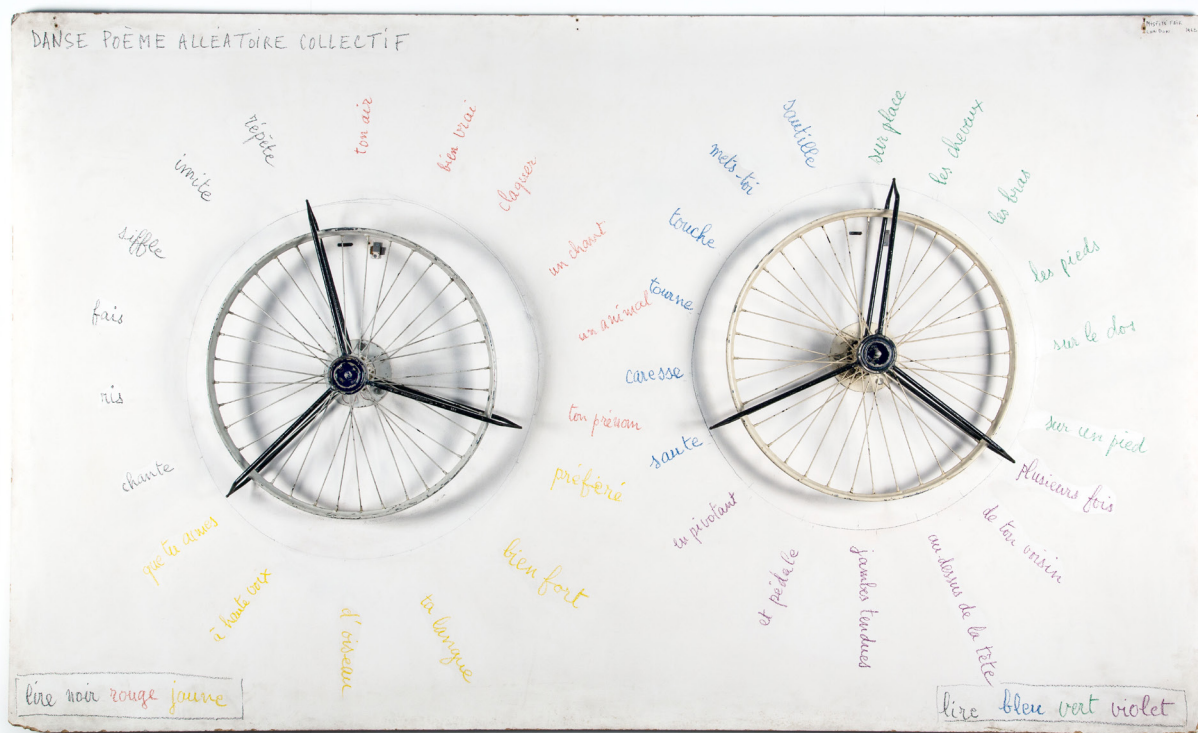 DANSE POÈME ALLÉATOIRE COLLECTIF
répète
imite
siffle
fais
ris
chante
ton air
bien vrai
claquer
un chant
un animal
ton prénom
préféré
bien fort
ta langue
d'oiseau
à haute voix
que tu aimes
lire noir rouge jaune
sautille
mets-toi
touche
tourne
caresse
saute
sur place
les cheveux
les bras
les pieds
sur le dos
sur un pied
plusieurs fois
de ton voisin
au-dessus de la tête
jambes tendues
et pédale
en pivotant
lire bleu vert violet